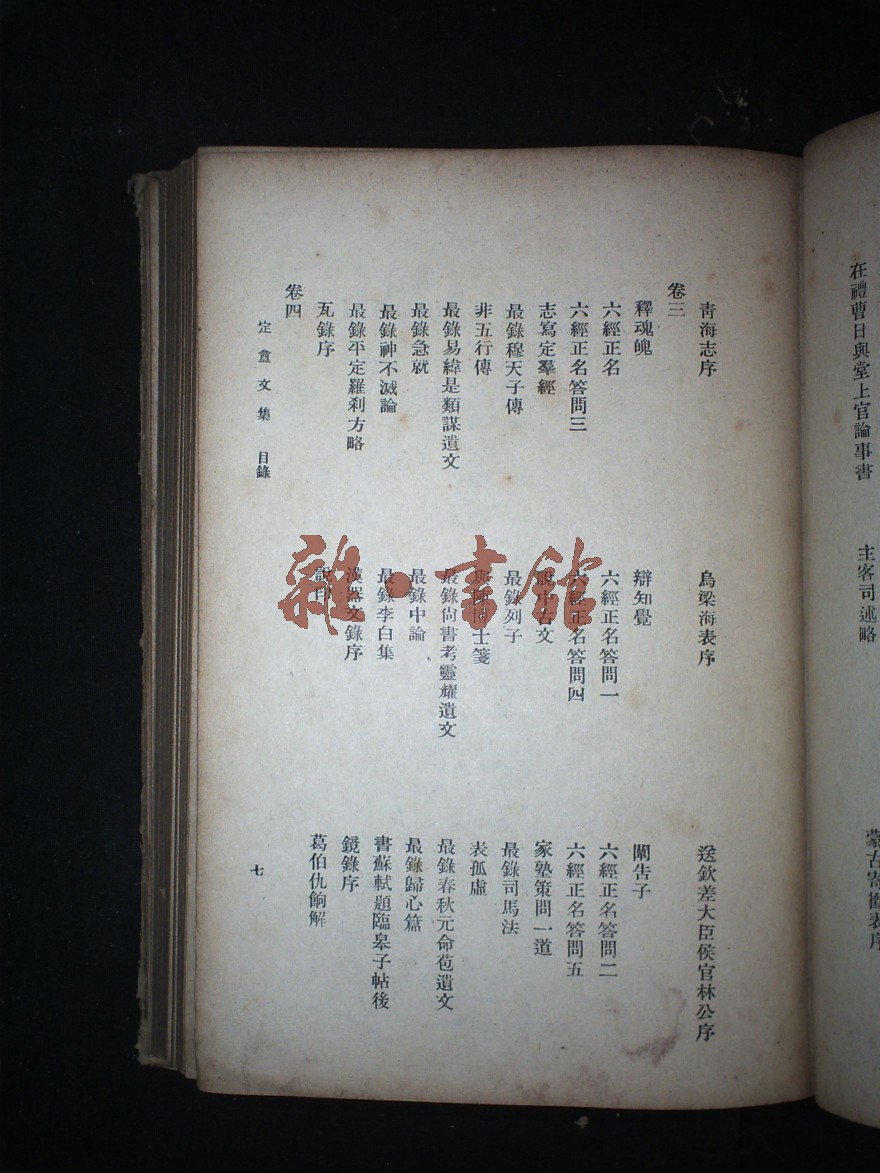 在禮曹日與堂上官論事書
主客司述略
蒙古寄爵表序
青海志序
烏梁海表序
送欽差大臣侯官林公序
卷三
釋魂魄
辯知覺
闡告子
六經正名
六經正名答問一
六經正名答問二
六經正名答問三
六經正名答問四
六經正名答問五
志寫定羣經
說中古文
家塾策問一道
最錄穆天子傳
最錄列子
最錄司馬法
非五行傳
與陳博士箋
表孤虛
最錄易緯是類謀遺文
最錄尙書考靈耀遺文
最錄春秋元命苞遺文
最錄急就
最錄中論
最錄歸心篇
最錄神不滅論
最錄李白集
書蘇軾題臨皋子帖後
最錄平定羅刹方略
漢器文錄序
鏡錄序
瓦錄序
說印
葛伯仇餉解
卷四
定盦文集 目錄
七
雜·書館